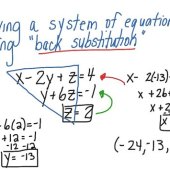 ving a system of equation
ing "back substitution"
x - 2y + z = 4
y + 6z = -1
z = 2
+ 6(2) = -1
+ 12 = -1
-12 -12
y = -13
x - 2(-13)
x + 26
x + 2
(-24, -13,